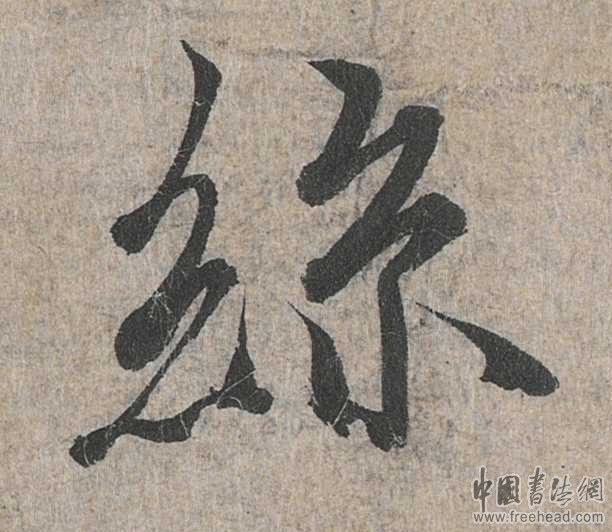 絲
中國書法網
www.freehead.com